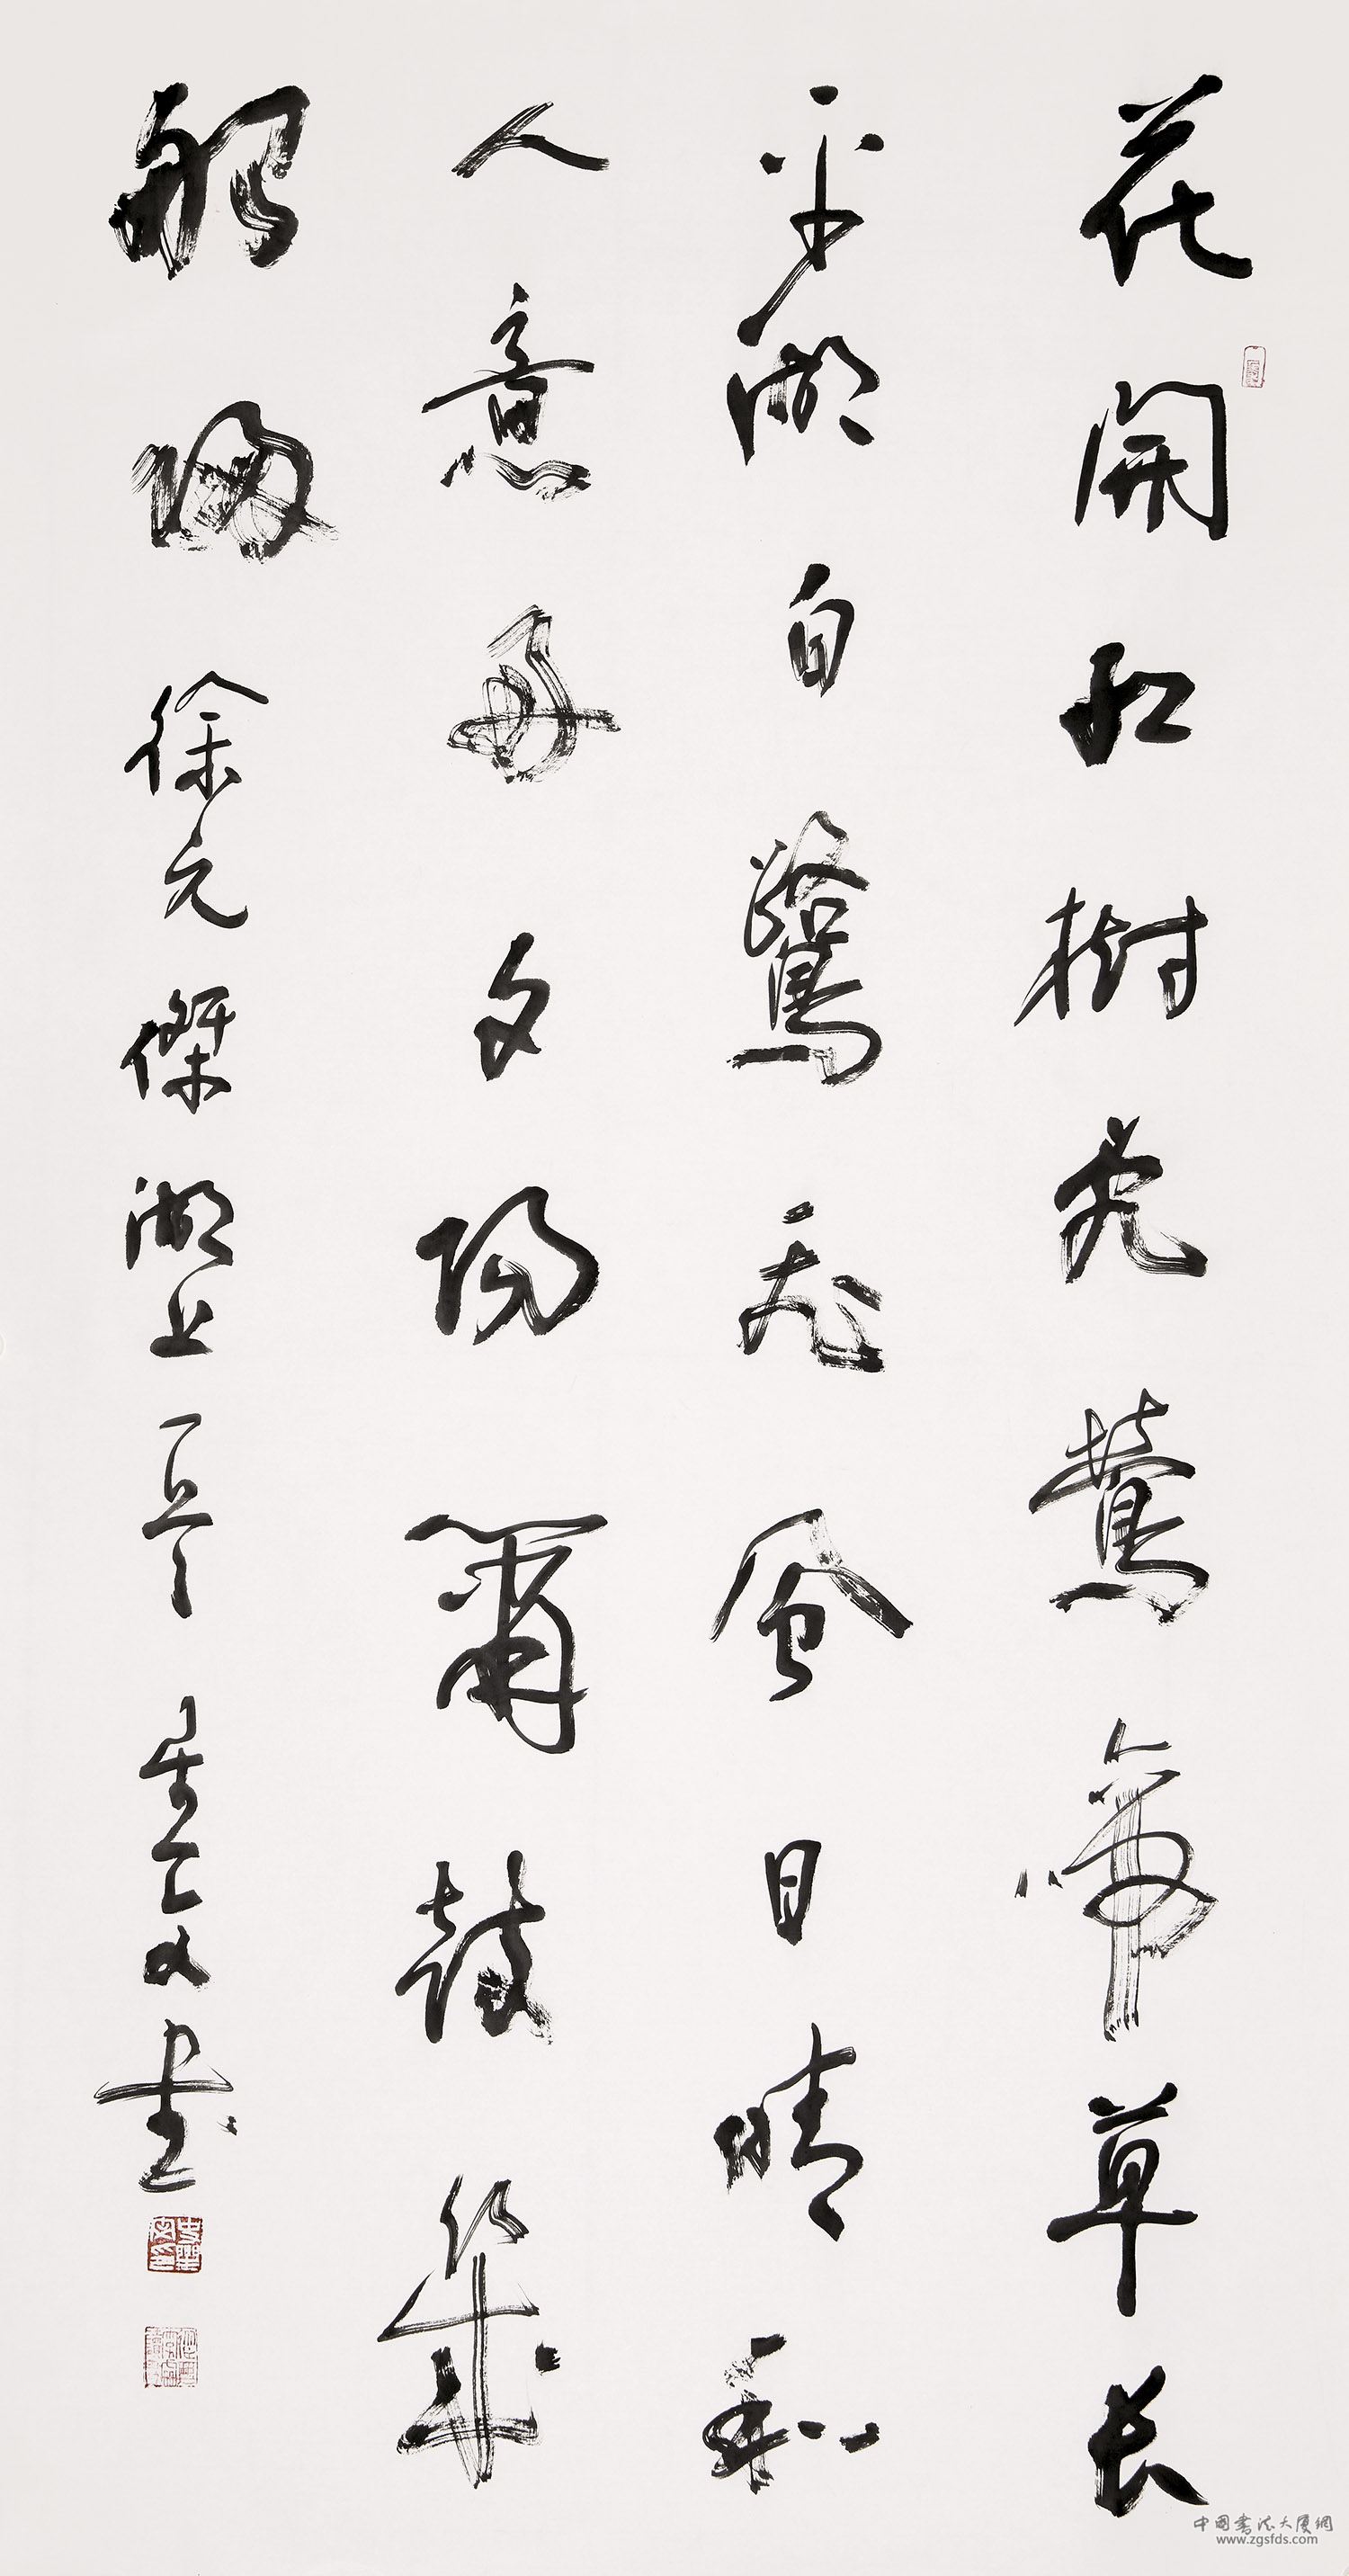 花開紅樹亂鶯啼草長
平湖白鷺飛風日晴和
人意好夕陽簫鼓幾
船歸 徐元傑湖上 書
中國書法大厦網
www.zgsfds.com